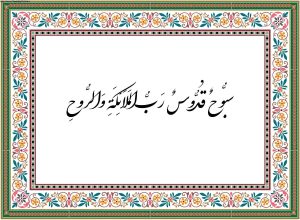 سُبُّوحٌ قُدُّوسٌ رَبُّ الْمَلَائِكَةِ وَالرُّوحِ